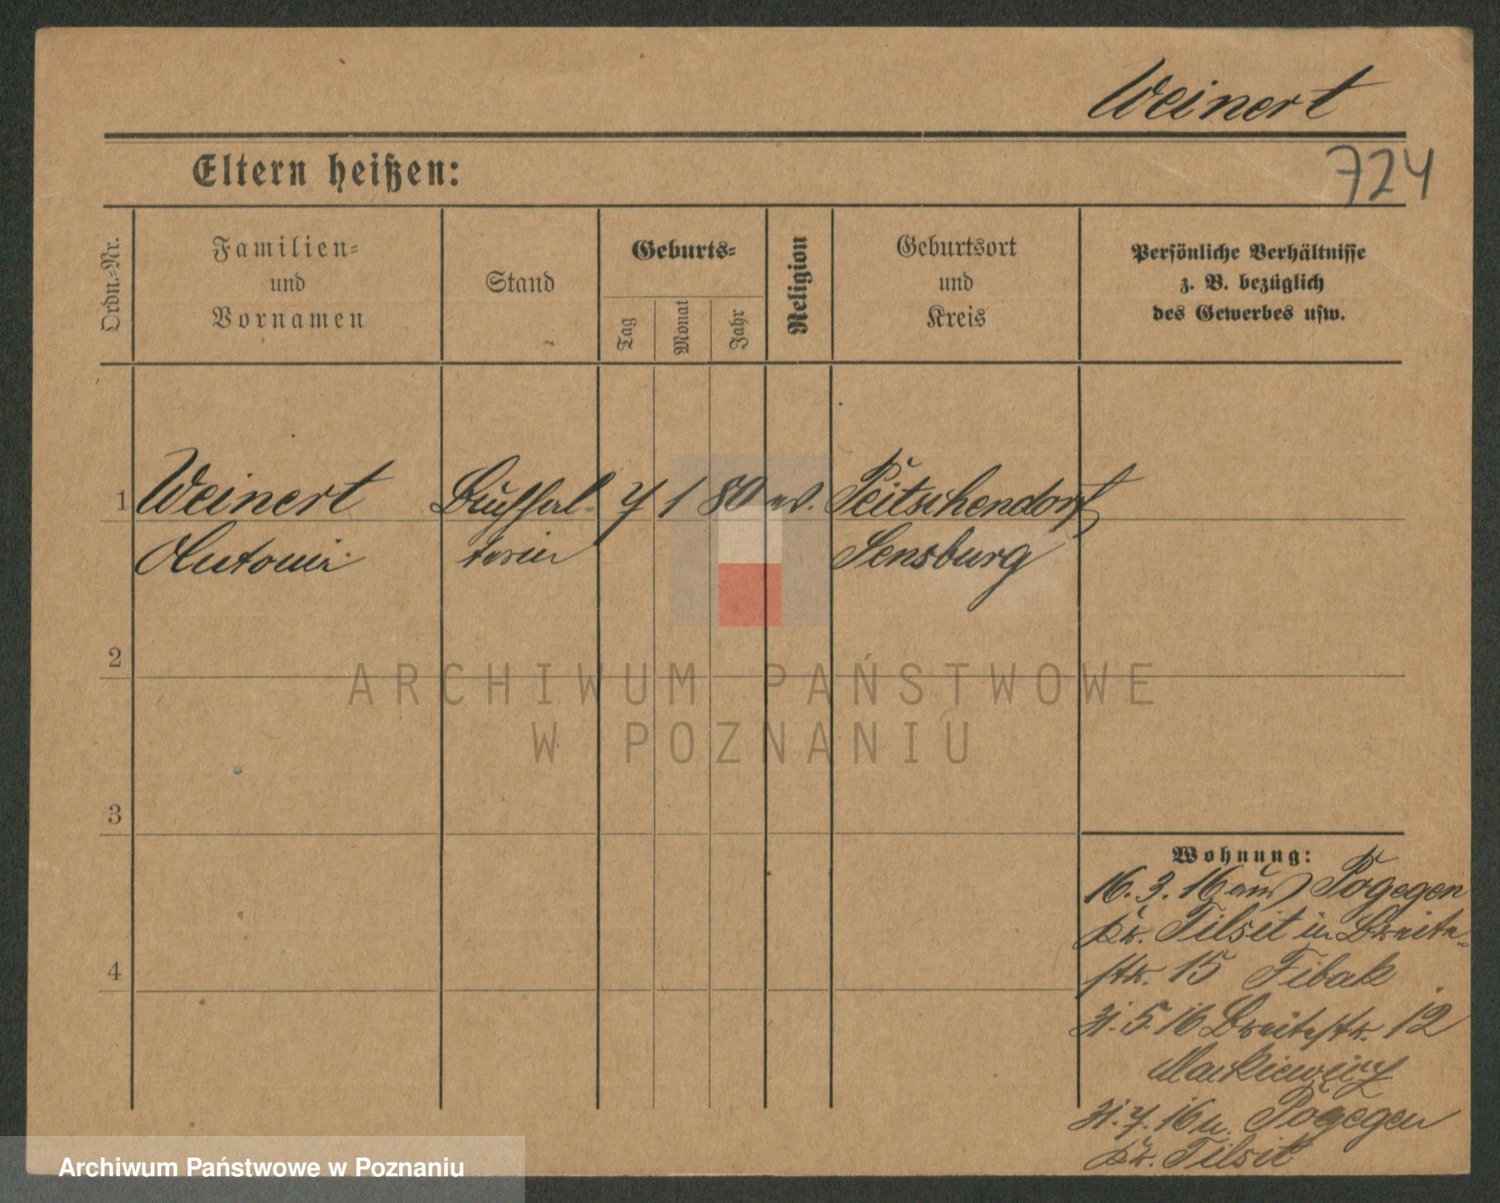 Weinert
Eltern heißen:
724
Ordn.-Nr.
Familien-
und
Vornamen
Stand
Geburts-
Tag
Monat
Jahr
Religion
Geburtsort
und
Kreis
Persönliche Verhältnisse
z. B. bezüglich
des Gewerbes usw.
1 Weinert Buchhal- 7 1 80 ev. Peitschendorf
Antonie terin Sensburg
2
3
4
Wohnung:
16. 3. 16 aus Pogegen
Kr. Tilsit in Breite-
str. 15 Fibak
31. 5. 16 Breitestr. 12
Markiewicz
31. 7. 16 n. Pogegen
Kr. Tilsit
ARCHIWUM PAŃSTWOWE
W POZNANIU
Archiwum Państwowe w Poznaniu